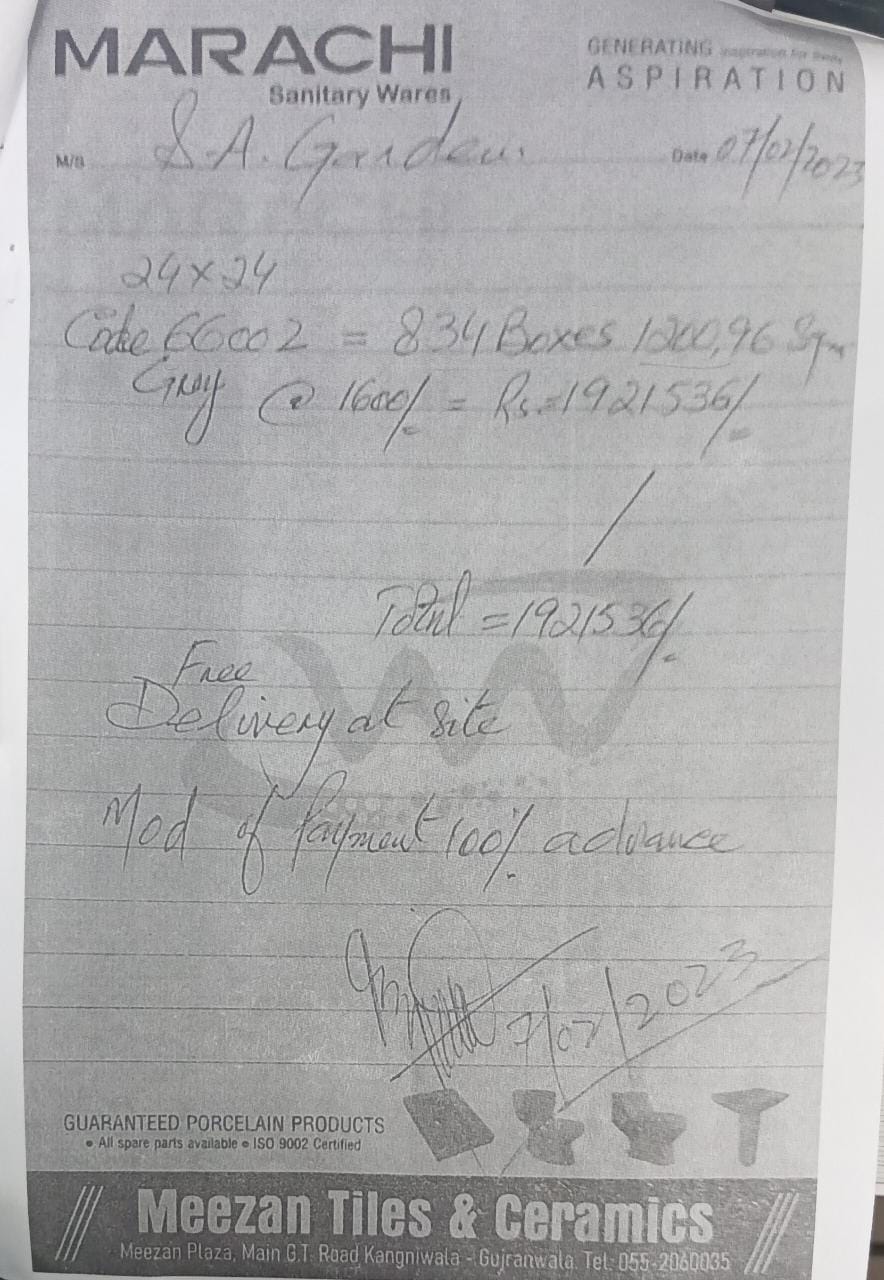 MARACHI
Sanitary Wares
GENERATING inspiration for
ASPIRATION
M/S S.A. Gardens
Date 07/02/2023
24x24
Code 66002 = 834 Boxes 1200.96 Sqm
Gray @ 1600/- = Rs = 1921536/-
Total = 1921536/-
Free
Delivery at site
Mod of Payment 100% advance
7/02/2023
GUARANTEED PORCELAIN PRODUCTS
• All spare parts available • ISO 9002 Certified
Meezan Tiles & Ceramics
Meezan Plaza, Main G.T. Road Kangniwala - Gujranwala. Tel: 055-2060035